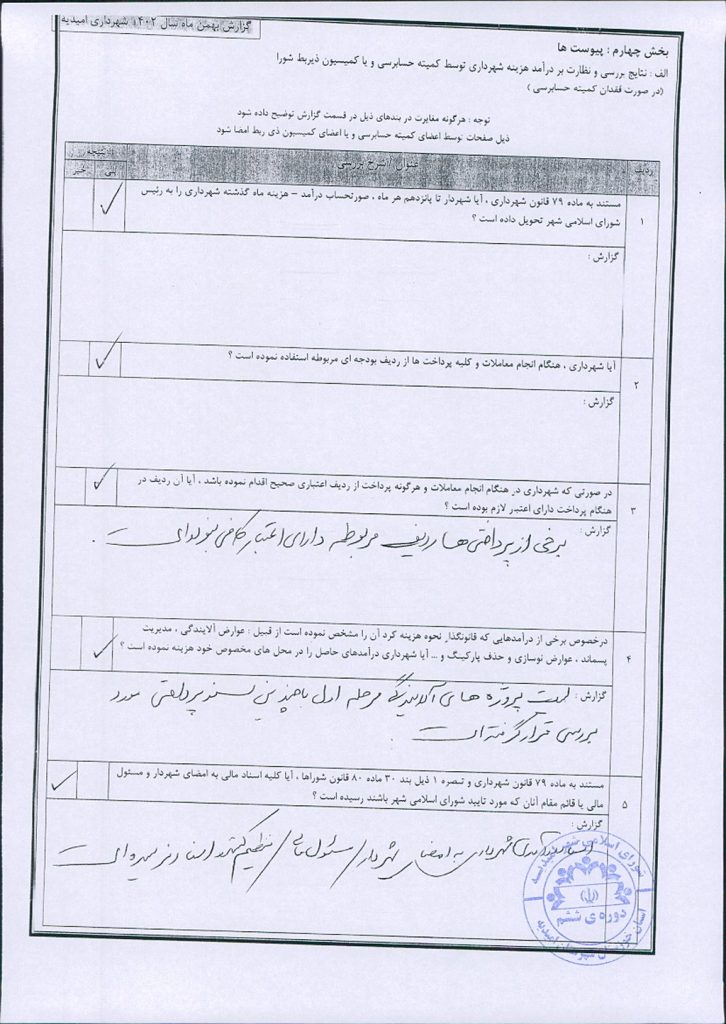 گزارش بهمن ماه سال ۱۴۰۲ شهرداری امیدیه
بخش چهارم : پیوست ها
الف : نتایج بررسی و نظارت بر درآمد هزینه شهرداری توسط کمیته حسابرسی و یا کمیسیون ذیربط شورا
(در صورت فقدان کمیته حسابرسی )
توجه : هرگونه مغایرت در بندهای ذیل در قسمت گزارش توضیح داده شود
ذیل صفحات توسط اعضای کمیته حسابرسی و یا اعضای کمیسیون ذی ربط امضا شود
ردیف عنوان / شرح بررسی نتیجه
بلی خیر
۱ مستند به ماده ۷۹ قانون شهرداری ، آیا شهردار تا پانزدهم هر ماه ، صورتحساب درآمد – هزینه ماه گذشته شهرداری را به رئیس
شورای اسلامی شهر تحویل داده است ؟
گزارش :
۲ آیا شهرداری ، هنگام انجام معاملات و کلیه پرداخت ها از ردیف بودجه ای مربوطه استفاده نموده است ؟
گزارش :
۳ در صورتی که شهرداری در هنگام انجام معاملات و هرگونه پرداخت از ردیف اعتباری صحیح اقدام نموده باشد ، آیا آن ردیف در
هنگام پرداخت دارای اعتبار لازم بوده است ؟
گزارش :
برخی از پرداختی ها ردیف مربوطه دارای اعتبار کافی نبوده است .
۴ درخصوص برخی از درآمدهایی که قانونگذار نحوه هزینه کرد آن را مشخص نموده است از قبیل : عوارض آلایندگی ، مدیریت
پسماند ، عوارض نوسازی و حذف پارکینگ و ... آیا شهرداری درآمدهای حاصل را در محل های مخصوص خود هزینه نموده است ؟
گزارش : لیست پروژه های آلایندگی مرحله اول با چندین سند پرداختی مورد
بررسی قرار گرفته است .
۵ مستند به ماده ۷۹ قانون شهرداری و تبصره ۱ ذیل بند ۳۰ ماده ۸۰ قانون شوراها ، آیا کلیه اسناد مالی به امضای شهردار و مسئول
مالی یا قائم مقام آنان که مورد تایید شورای اسلامی شهر باشند رسیده است ؟
گزارش :
شهرداری به امضای شهردار / مسئول مالی / تنظیم کننده اسناد
شورای اسلامی شهر امیدیه
دوره ی ششم
استان خوزستان شهرستان امیدیه